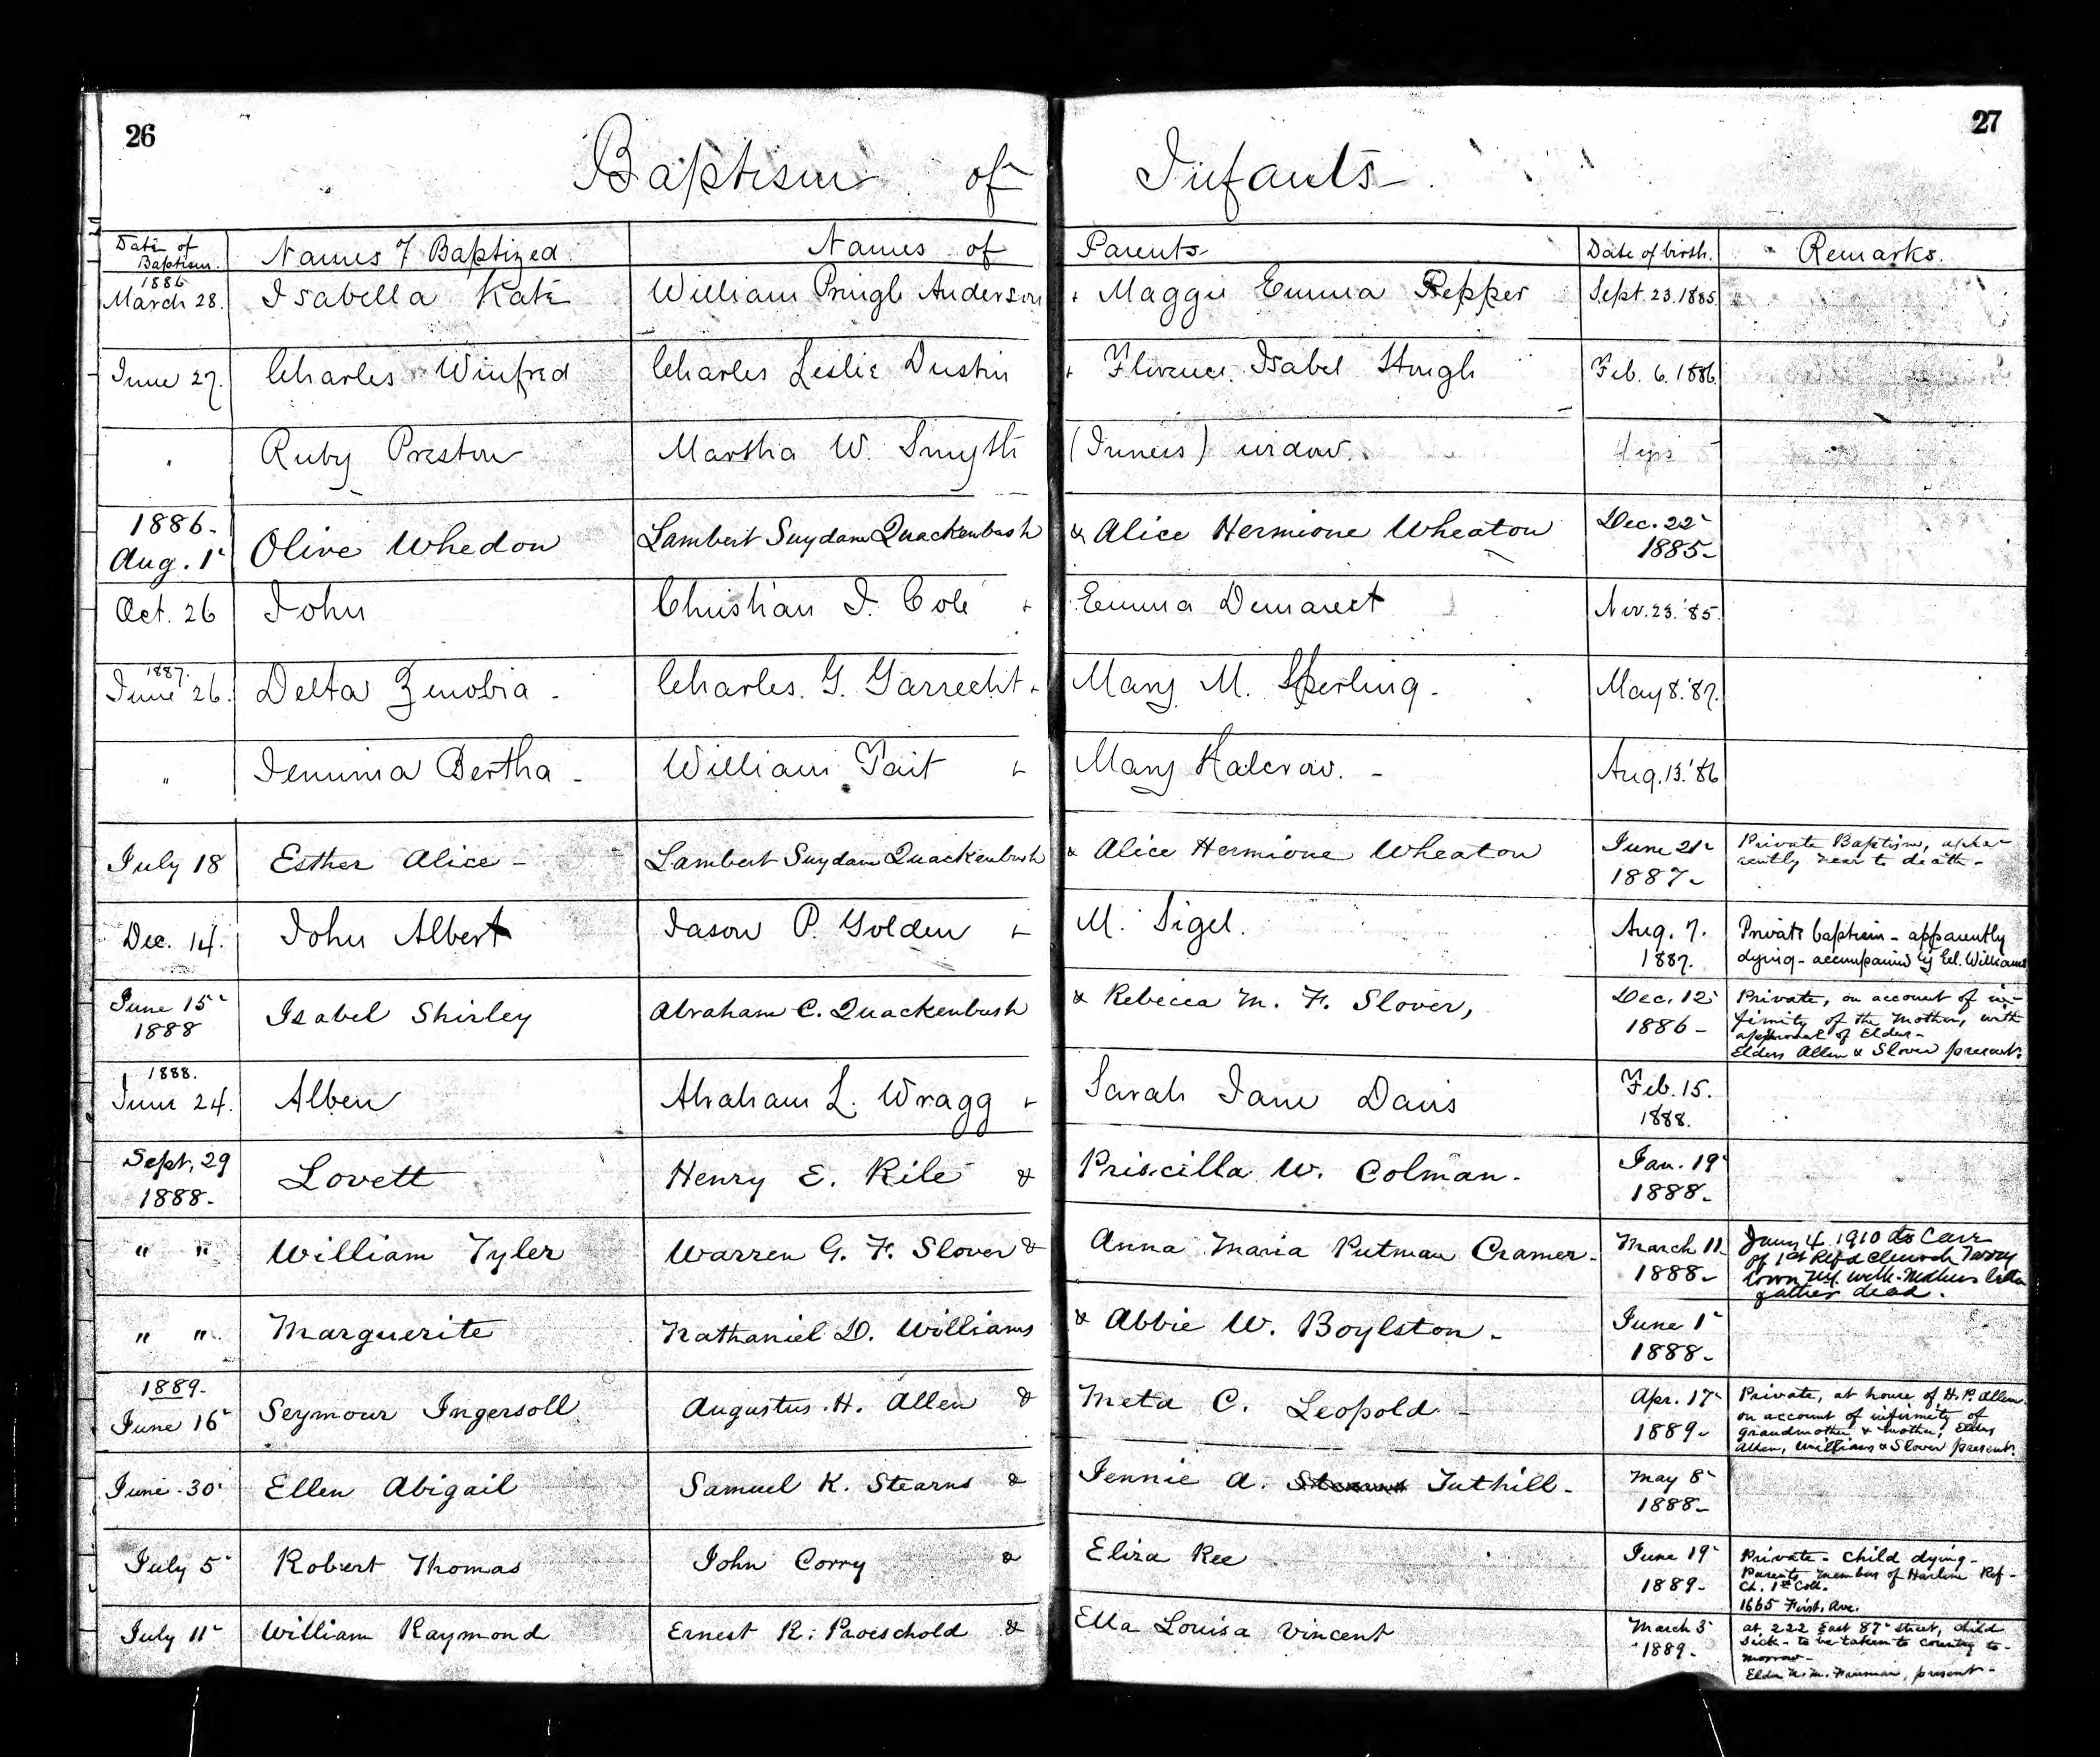 26
27
Baptism of Infants
Date of Baptism. Names of Baptized Names of Parents Date of birth. Remarks.
1886
March 28. Isabella Kate William Pringle Anderson + Maggie Emma Repper Sept. 23. 1885
June 27. Charles Winfred Charles Leslie Dustin + Florence Isabel Hough Feb. 6. 1886
" Ruby Preston Martha W. Smyth (Inness) widow.
1886-
Aug. 1 Olive Whedon Lambert Suydam Quackenbush & Alice Hermione Wheaton Dec. 22
1885-
Oct. 26 John Christian I. Cole + Emma Demarest Nov. 23. '85.
1887.
June 26. Delta Zenobia - Charles. G. Garrecht + Mary M. Sperling - May 8. '87.
" Jemima Bertha - William Tait + Mary Halcrow. - Aug. 13. '86
July 18 Esther Alice - Lambert Suydam Quackenbush & Alice Hermione Wheaton June 21
1887-
Private Baptism, appa-
rently near to death -
Dec. 14. John Albert Jason P. Golden + M. Sigel. Aug. 7.
1887.
Private baptism - apparently
dying - accompanied by El. Williams
June 15
1888 Isabel Shirley Abraham C. Quackenbush & Rebecca M. F. Slover, Dec. 12
1886-
Private, on account of in-
firmity of the mother, with
approval of Elders -
Elders Allen & Slover present.
1888.
June 24. Alben Abraham L. Wragg + Sarah Jane Davis Feb. 15.
1888.
Sept. 29
1888- Lovett Henry E. Rile & Priscilla W. Colman - Jan. 19
1888-
" " William Tyler Warren G. F. Slover & Anna Maria Putman Cramer - March 11
1888-
Jany 4 1910 to Care
of 1st Refd Church Tarry
town NY. with Mothers letter
father dead.
" " Marguerite Nathaniel D. Williams & Abbie W. Boylston - June 1
1888-
1889-
June 16 Seymour Ingersoll Augustus H. Allen & Meta C. Leopold - Apr. 17
1889-
Private, at house of H. P. Allen
on account of infirmity of
grandmother & mother, Elders
Allen, Williams & Slover present.
June 30 Ellen Abigail Samuel K. Stearns & Jennie A. Stearns Tuthill - May 8
1888-
July 5 Robert Thomas John Corry & Eliza Kee June 19
1889-
Private - child dying -
Parents members of Harlem Ref -
Ch. 1st Coll.
1665 First. Ave.
July 11 William Raymond Ernest R. Proeschold & Ella Louisa Vincent March 3
1889-
at 222 East 87 street, child
sick - to be taken to country to-
morrow -
Elder present -